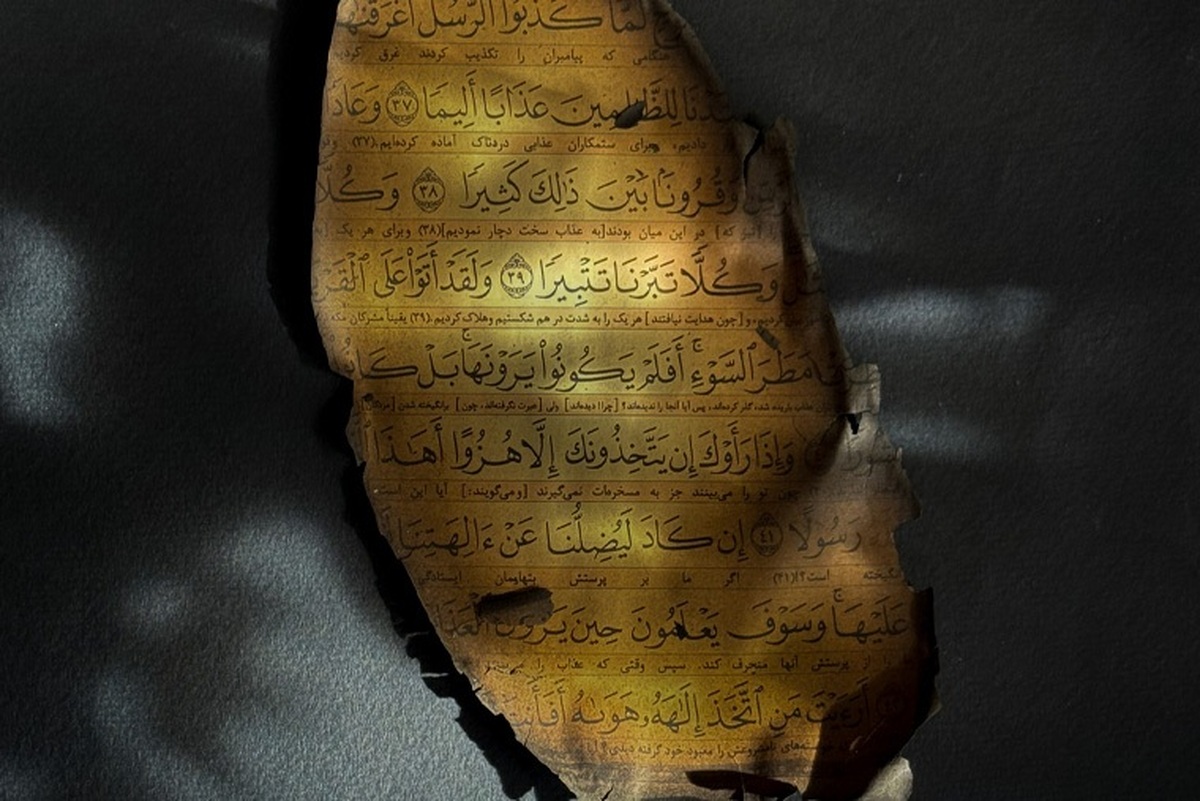 لَمَّا كَذَّبُوا الرُّسُلَ أَغْرَقْنَٰهُ
هنگامی که پیامبران را تکذیب کردند غرق کردیم
لِلظَّٰلِمِينَ عَذَابًا أَلِيمًا ٣٧ وَعَادًا
دادیم، وبرای ستمکاران عذابی دردناک آماده کرده‌ایم.(۳۷)
وَقُرُونًا بَيْنَ ذَٰلِكَ كَثِيرًا ٣٨ وَكُلًّا
را [نیز که] در این میان بودند[به عذاب سخت دچار نمودیم](۳۸) وبرای هر یک
وَكُلًّا تَبَّرْنَا تَتْبِيرًا ٣٩ وَلَقَدْ أَتَوْا۟ عَلَى ٱلْقَرْ
و [چون هدایت نیافتند] هر یک را به شدت در هم شکستیم وهلاک کردیم.(۳۹) یقیناً مشرکان مکه
مَطَرَ ٱلسَّوْءِ ۚ أَفَلَمْ يَكُونُوا۟ يَرَوْنَهَا ۚ بَلْ كَانُ
عذاب باریده شد، گذر کرده‌اند، پس آیا آنجا را ندیده‌اند؟ [چرا! دیده‌اند] ولی [عبرت نگرفته‌اند، چون] برانگیخته شدن
وَإِذَا رَأَوْكَ إِن يَتَّخِذُونَكَ إِلَّا هُزُوًا أَهَٰذَا
چون تو را می‌بینند جز به مسخره‌ات نمی‌گیرند [و می‌گویند:] آیا این است
رَسُولًا ٤١ إِن كَادَ لَيُضِلُّنَا عَنْ ءَالِهَتِنَا
است؟!(۴۱) اگر ما بر پرستش بتهایمان ایستادگی
عَلَيْهَا ۚ وَسَوْفَ يَعْلَمُونَ حِينَ يَرَوْنَ ٱلْعَذَا
را از پرستش آنها منحرف کند. سپس وقتی که عذاب را می‌بینند
أَرَءَيْتَ مَنِ ٱتَّخَذَ إِلَٰهَهُۥ هَوَىٰهُ أَفَأَنتَ
را معبود خود گرفته دیدی؟